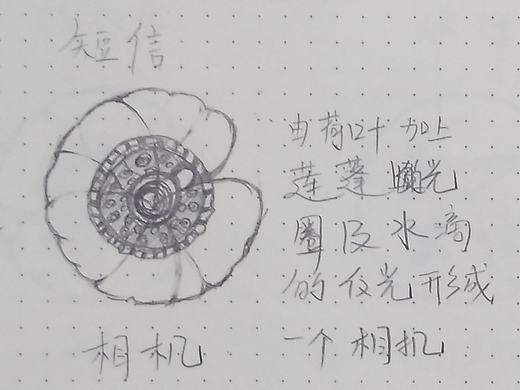 短信
由荷叶加上
莲蓬 光
圈及水滴
的反光形成
一个相机
相机